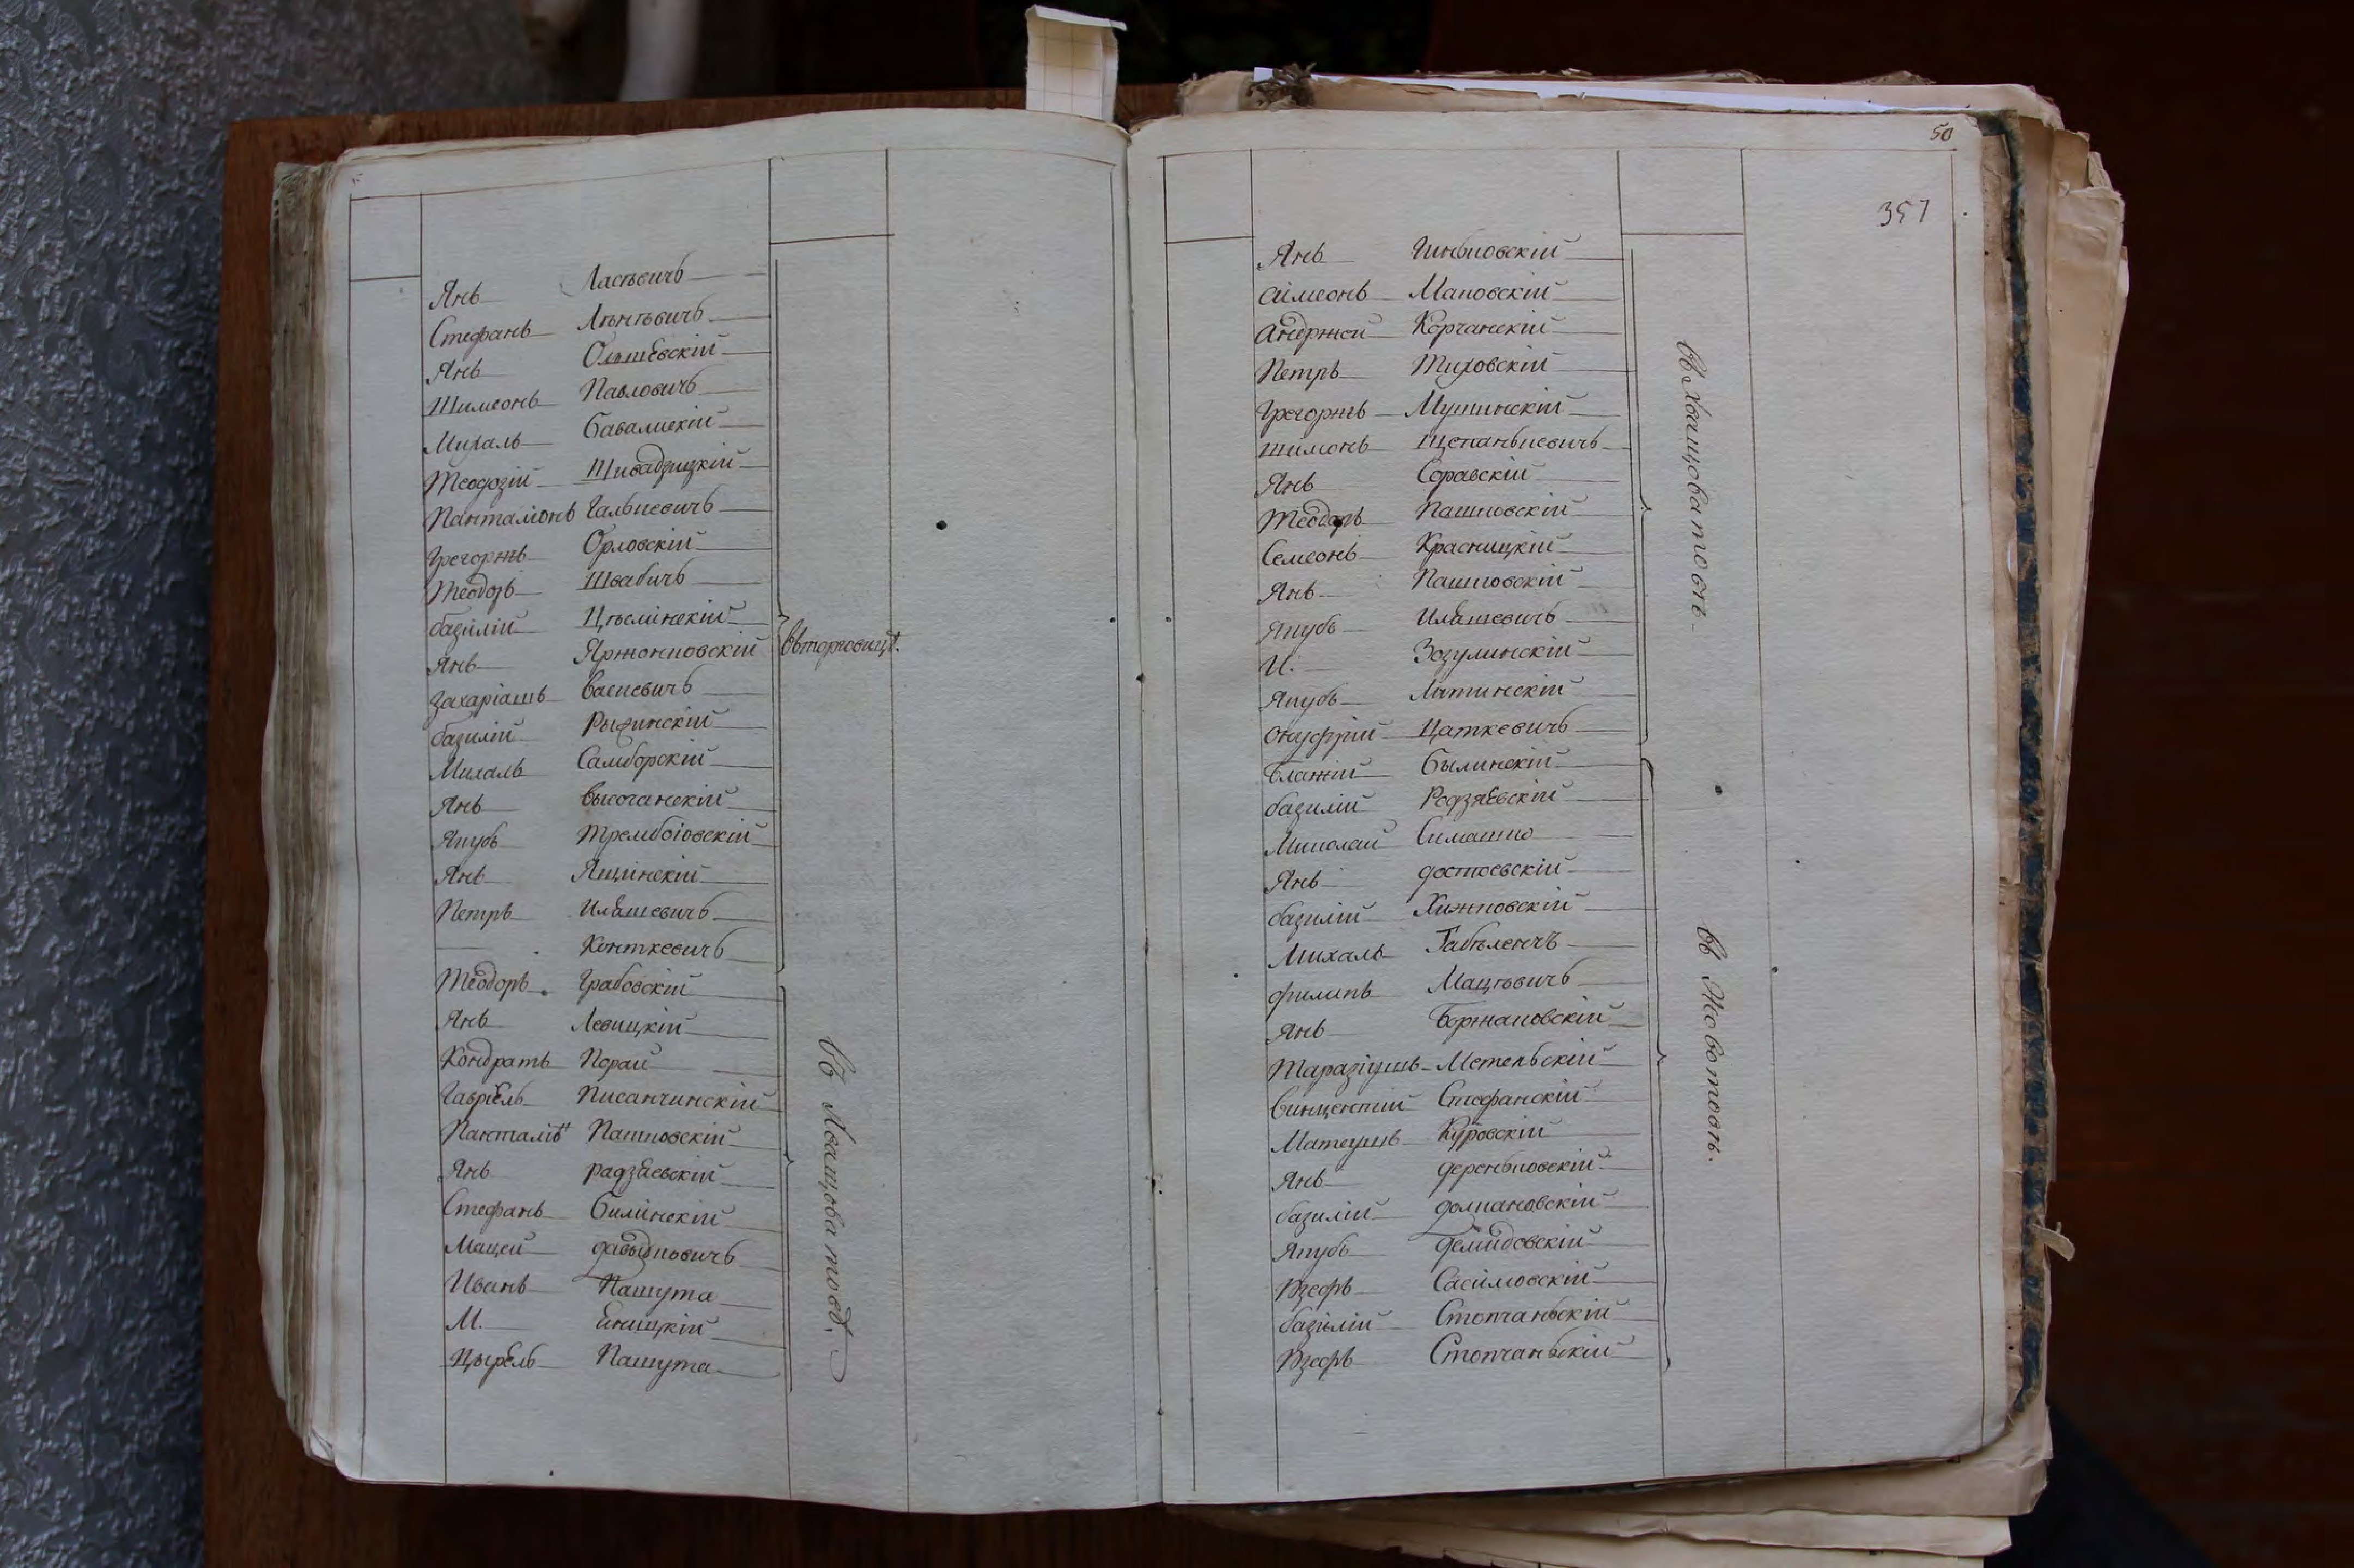 Янъ Ласѣвичъ
Стефанъ Лѣнѣвичъ
Янъ Олшевскій
Шимеонъ Павловичъ
Михаль Бавалискій
Теодозій Шивадзицкій
Панталіонъ Галькевичъ
Грегоржъ Орловскій
Теодоръ Швабичъ
базилій Цѣслінскій
Янъ Яржонковскій
Въ торговицѣ.
Захаріашъ Васкевичъ
базилій Рызинскій
Михаль Самборскій
Янъ Высочанскій
Якубъ Трембоіовскій
Янъ Ящинскій
Петръ Иляшевичъ
Конткевичъ
Теодоръ Грабовскій
Янъ Левицкій
Кондратъ Порай
Гавріель Писанчинскій
Пашковскій
Янъ радзіевскій
Стефанъ Билинскій
Мацей давидковичъ
Иванъ Пашута
М. Еницкій
Цырель Пашута
50
357
Янъ Гинбковскій
Сімеонъ Маковскій
Андржей Корчанскій
Петръ Тиховскій
Грегоржъ Мушинскій
Шимонъ Щепанькевичъ
Янъ Соравскій
Теодоръ Пашковскій
Семеонъ Красницкій
Янъ Пашковскій
Якубъ Иляшевичъ
И. Зозулинскій
Якубъ Лятинскій
Онуфрій Цаткевичъ
Въ Хващоватость
Блажій Былинскій
базилій Родзяевскій
Миколай Симашко
Янъ достоевскій
базилій Хижковскій
Михаль Габѣленчъ
филипъ Мацѣвичъ
Янъ Боржаковскій
Таразіушъ Метельскій
Винцентій Стефанскій
Матеушъ Куровскій
Янъ деренбковскій
базилій долмановскій
Якубъ демидовскій
Юзефъ Сасимовскій
базилій Стопчаньскій
Юзефъ Стопчаньскій
въ Животовъ.